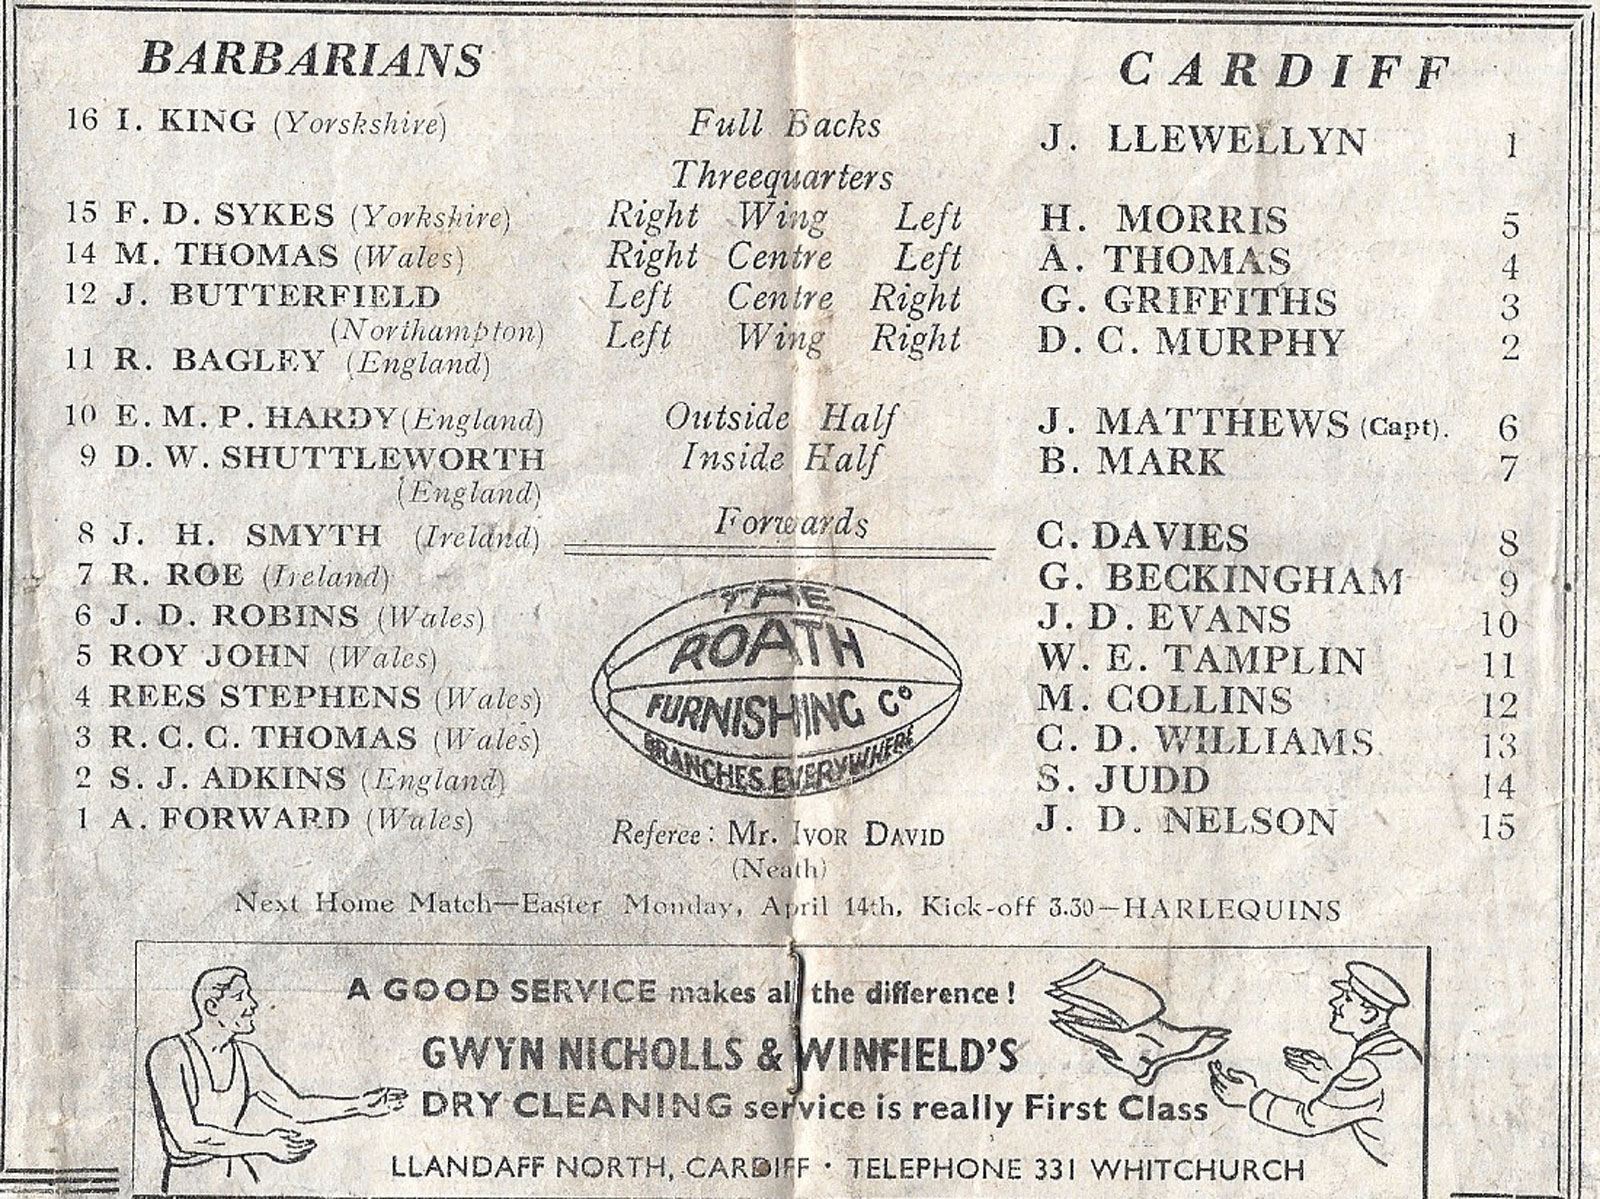 BARBARIANS CARDIFF
16 I. KING (Yorskshire) Full Backs J. LLEWELLYN 1
Threequarters
15 F. D. SYKES (Yorkshire) Right Wing Left H. MORRIS 5
14 M. THOMAS (Wales) Right Centre Left A. THOMAS 4
12 J. BUTTERFIELD Left Centre Right G. GRIFFITHS 3
(Northampton) Left Wing Right D. C. MURPHY 2
11 R. BAGLEY (England)
10 E. M. P. HARDY (England) Outside Half J. MATTHEWS (Capt). 6
9 D. W. SHUTTLEWORTH Inside Half B. MARK 7
(England)
Forwards
8 J. H. SMYTH (Ireland) C. DAVIES 8
7 R. ROE (Ireland) G. BECKINGHAM 9
6 J. D. ROBINS (Wales) J. D. EVANS 10
5 ROY JOHN (Wales) W. E. TAMPLIN 11
4 REES STEPHENS (Wales) M. COLLINS 12
3 R. C. C. THOMAS (Wales) C. D. WILLIAMS 13
2 S. J. ADKINS (England) S. JUDD 14
1 A. FORWARD (Wales) J. D. NELSON 15
THE
ROATH
FURNISHING Co
BRANCHES EVERYWHERE
Referee: Mr. IVOR DAVID
(Neath)
Next Home Match—Easter Monday, April 14th, Kick-off 3.30—HARLEQUINS
A GOOD SERVICE makes all the difference!
GWYN NICHOLLS & WINFIELD'S
DRY CLEANING service is really First Class
LLANDAFF NORTH, CARDIFF · TELEPHONE 331 WHITCHURCH